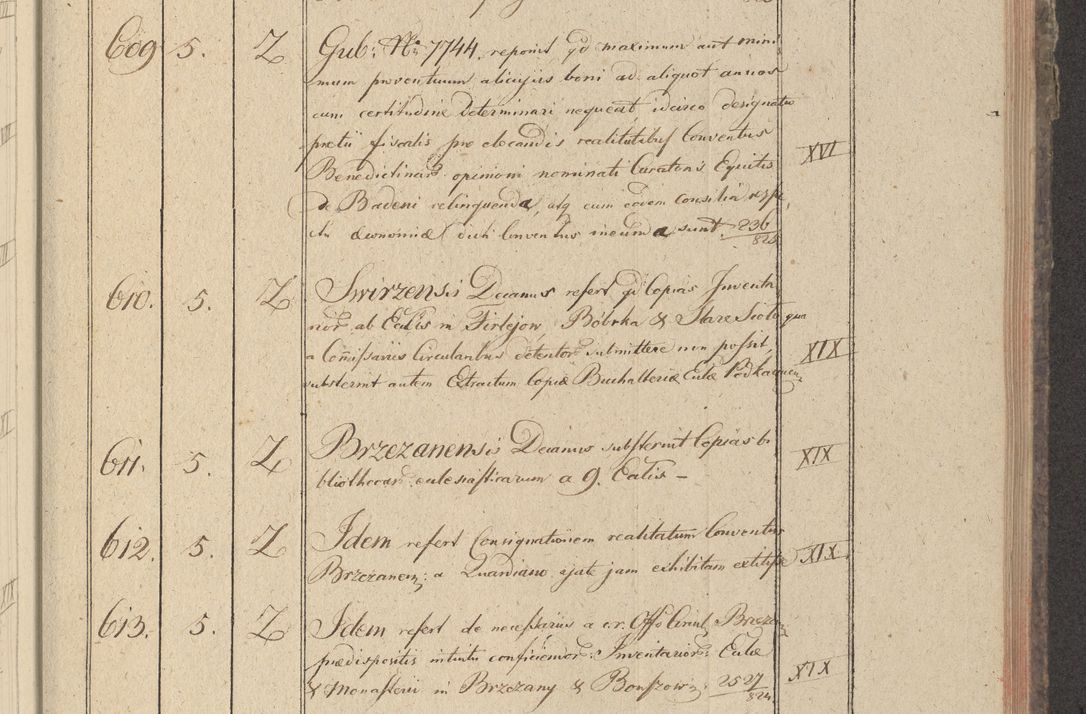 609 5. Z Gub: No: 7744. reponit qd maximum aut mini
mum proventuum alicujus boni ad aliquot annos
cum certitudine determinari nequeat, idcirco designatio
pretii fiscalis pro elocandis realitatibus Conventus
Benedictinar: opinioni nominati Curatoris Equitis XVI
de Badeni relinquenda, atq cum eodem Consilia respe
ctu Œconomiæ dicti Conventus ineunda sunt. 236/824
610. 5. Z Swirzensis Decanus refert qd Copias Inventa
rior: ab Ecclis in Firlejow, Bóbrka & Stare Sioło qua
a Comissariis Circularibus detentor: submittere non possit, XIX
substernit autem Extractum Copiæ Buchalteriæ Ecclæ Podkamien:
611. 5. Z Brzezanensis Decanus substernit Copias bi XIX
bliothecar: ecclesiasticarum a 9. Ecclis –
612. 5. Z Idem refert Consignationem realitatum Conventus XIX
Brzezanen: a Quardiano ejate jam exhibitam extitisse
613. 5. Z Idem refert de necessariis a c.r. Offo Circul: Brzezan:
prædispositis intuitu conficiendor: Inventarior: Ecclæ XIX
& Monasterii in Brzezany & Bouszow: 2527/824